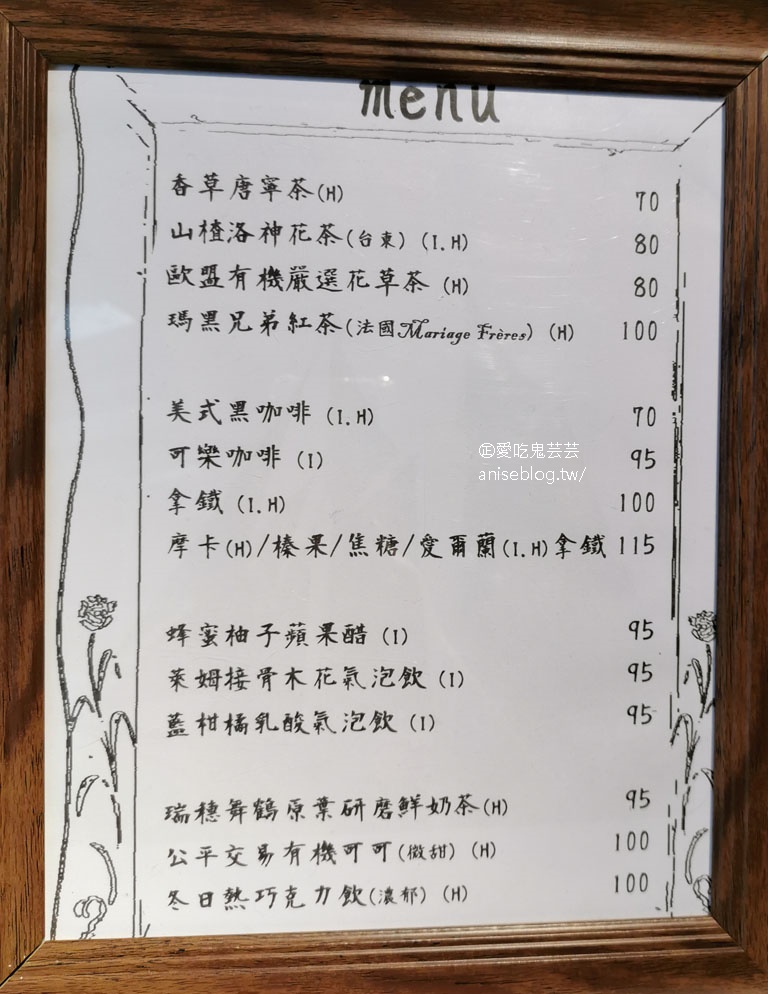 menu
香草唐寧茶(H) 70
山楂洛神花茶(台東) (I.H) 80
歐盟有機嚴選花草茶 (H) 80
瑪黑兄弟紅茶(法國Mariage Frères) (H) 100
美式黑咖啡 (I.H) 70
可樂咖啡 (I) 95
㊣愛吃鬼芸芸
aniseblog.tw/
拿鐵 (I.H) 100
摩卡(H)/榛果/焦糖/愛爾蘭(I.H)拿鐵 115
蜂蜜柚子蘋果醋 (I) 95
萊姆接骨木花氣泡飲 (I) 95
藍柑橘乳酸氣泡飲 (I) 95
瑞穗舞鶴原葉研磨鮮奶茶(H) 95
公平交易有機可可(微甜) (H) 100
冬日熱巧克力飲(濃郁) (H) 100